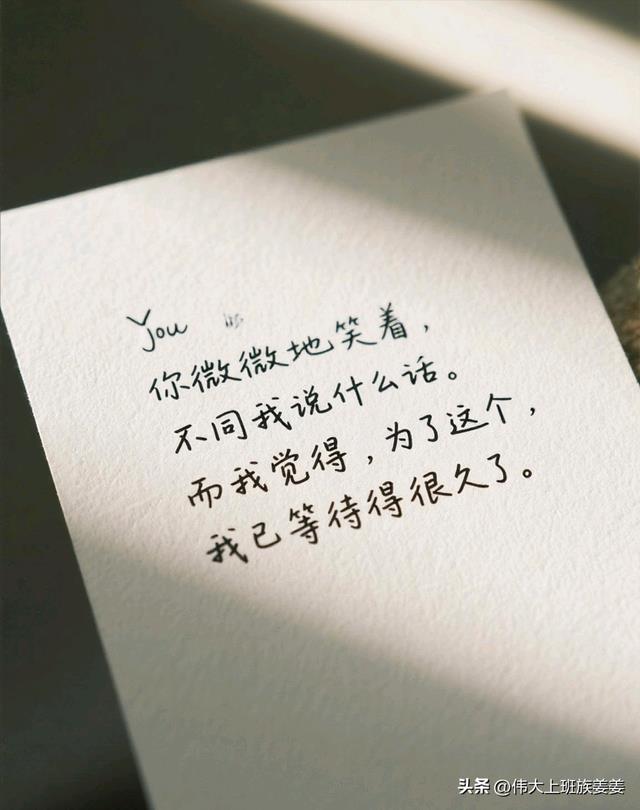 You
你微微地笑着，
不同我说什么话。
而我觉得，为了这个，
我已等待得很久了。
头条 @伟大上班族姜姜